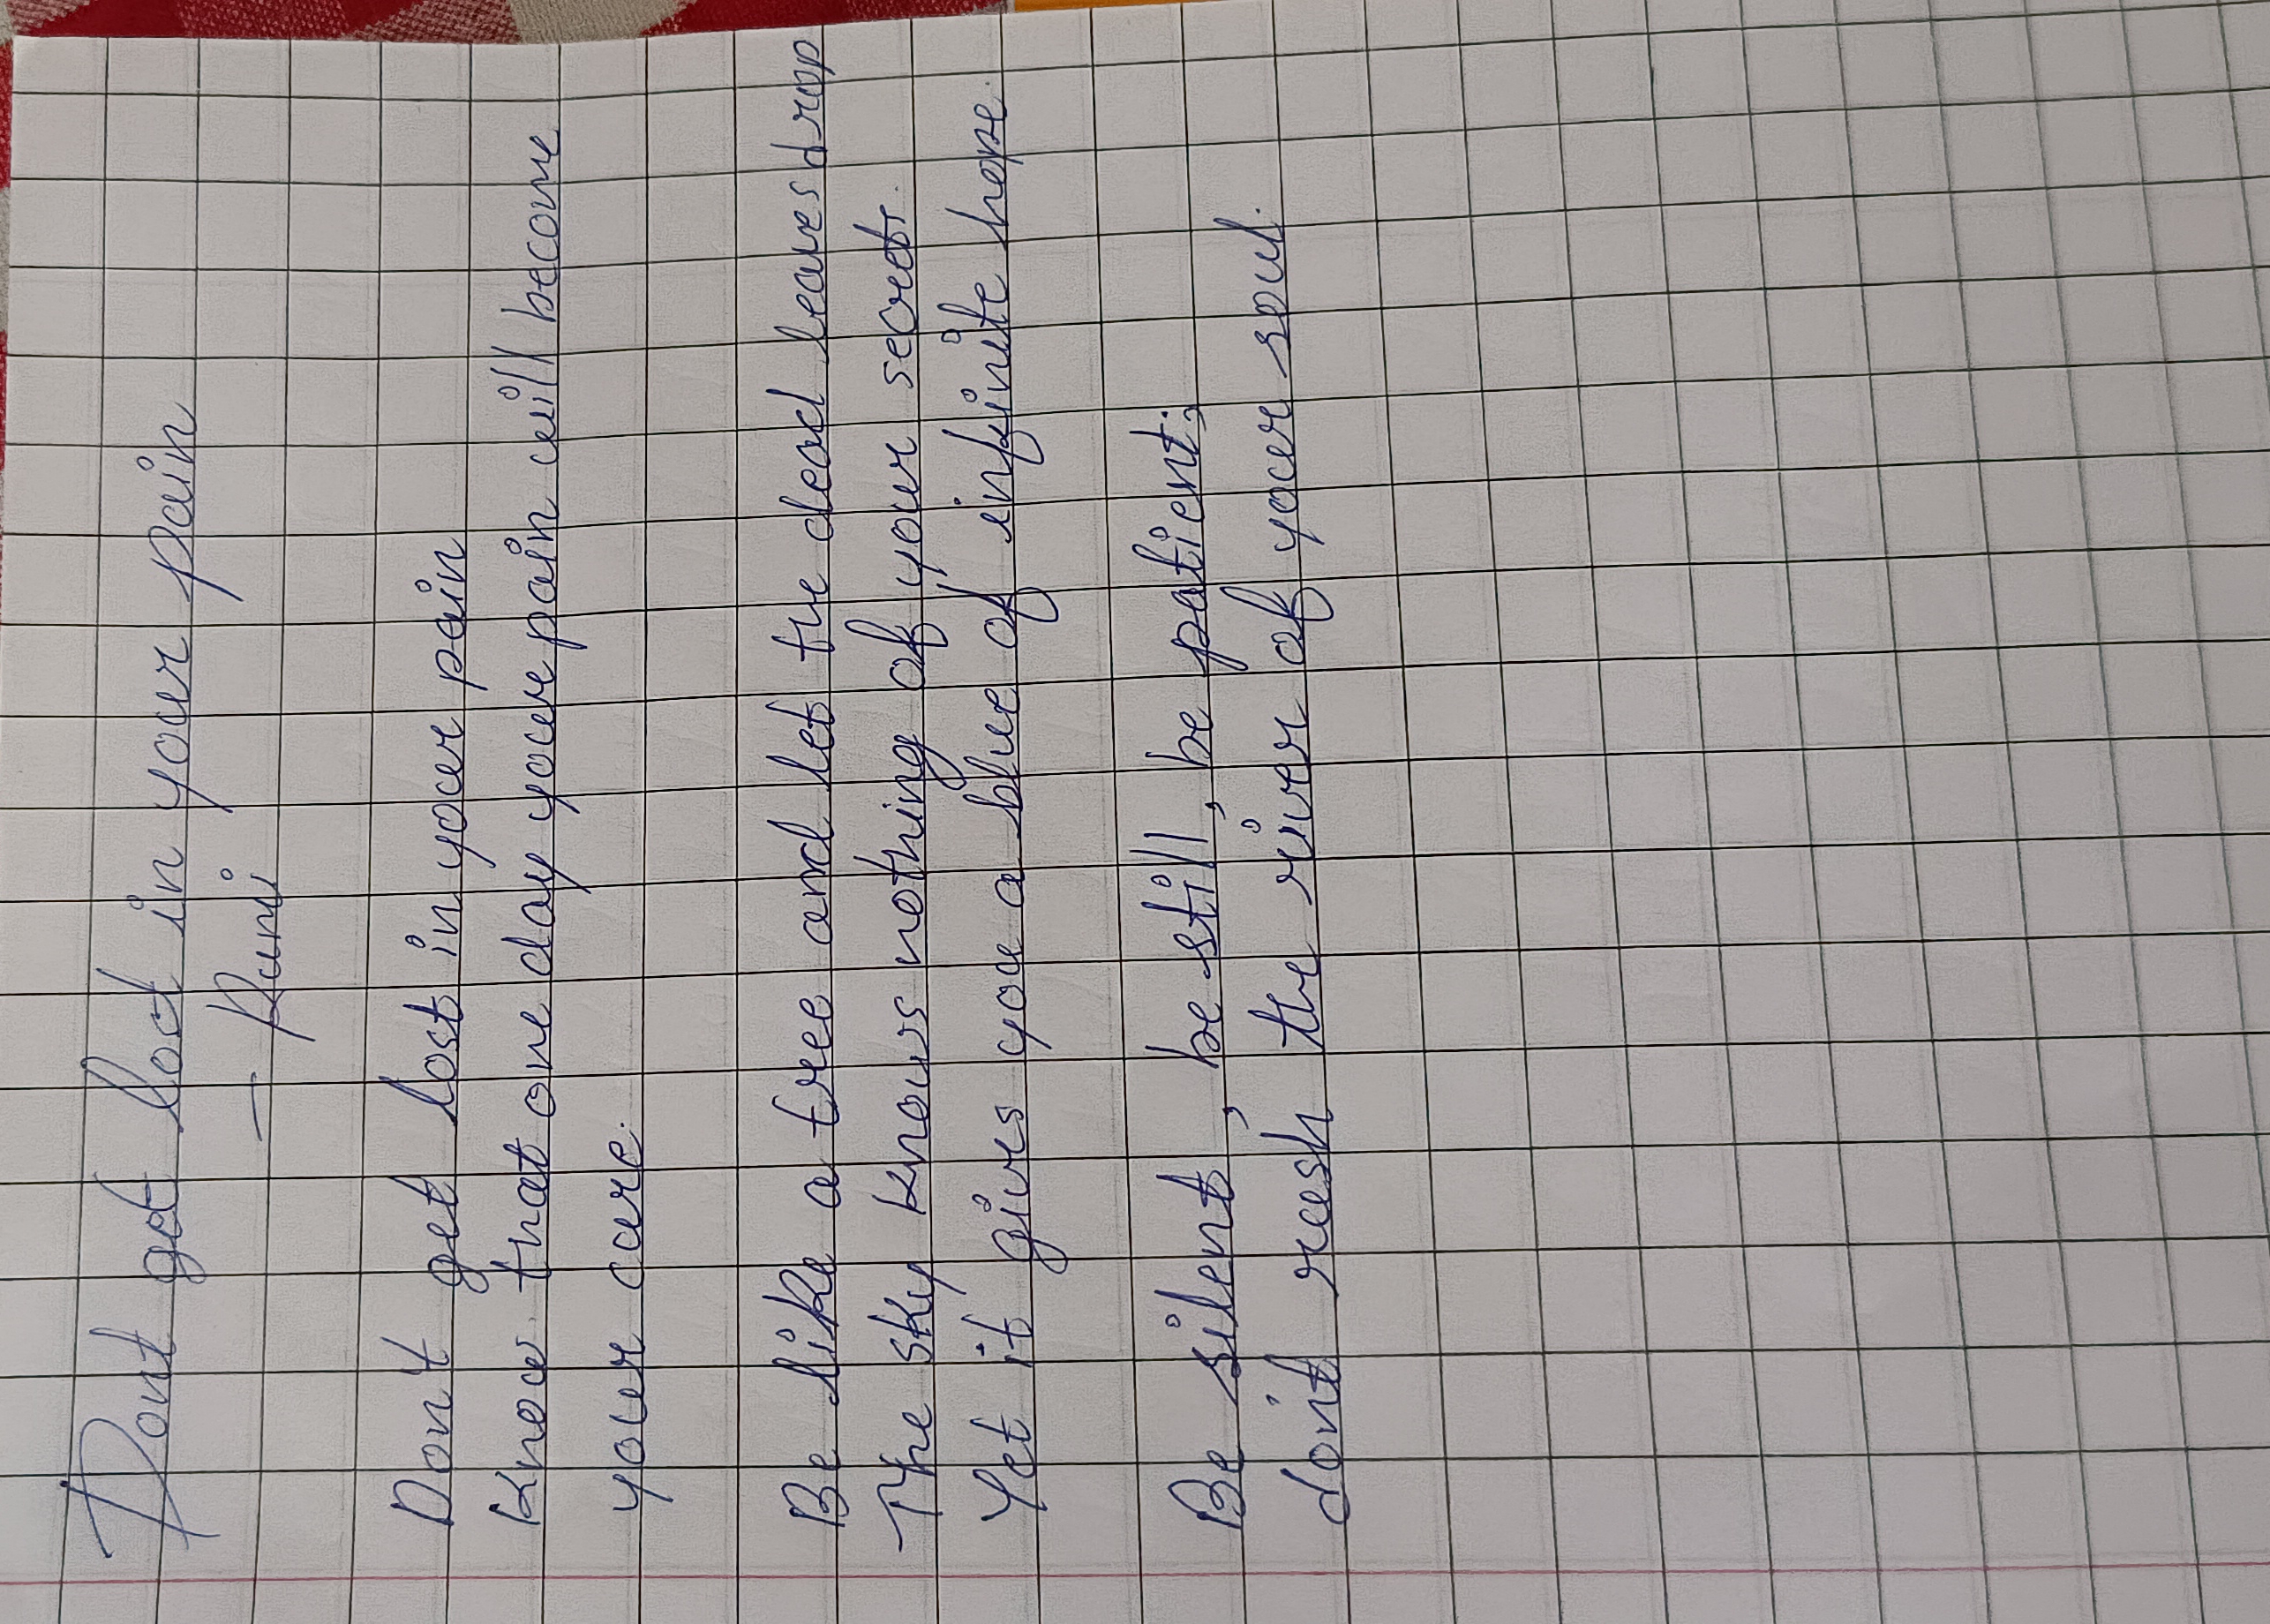 Dont get lost in your pain
- Rumi
Don't get lost in your pain
Know that one day your pain will become
your cure.
Be like a tree and let the dead leaves drop
The sky knows nothing of your secrets.
Yet it gives you a blue of infinite hope.
Be silent, be still, be patient;
don't rush the river of your soul.